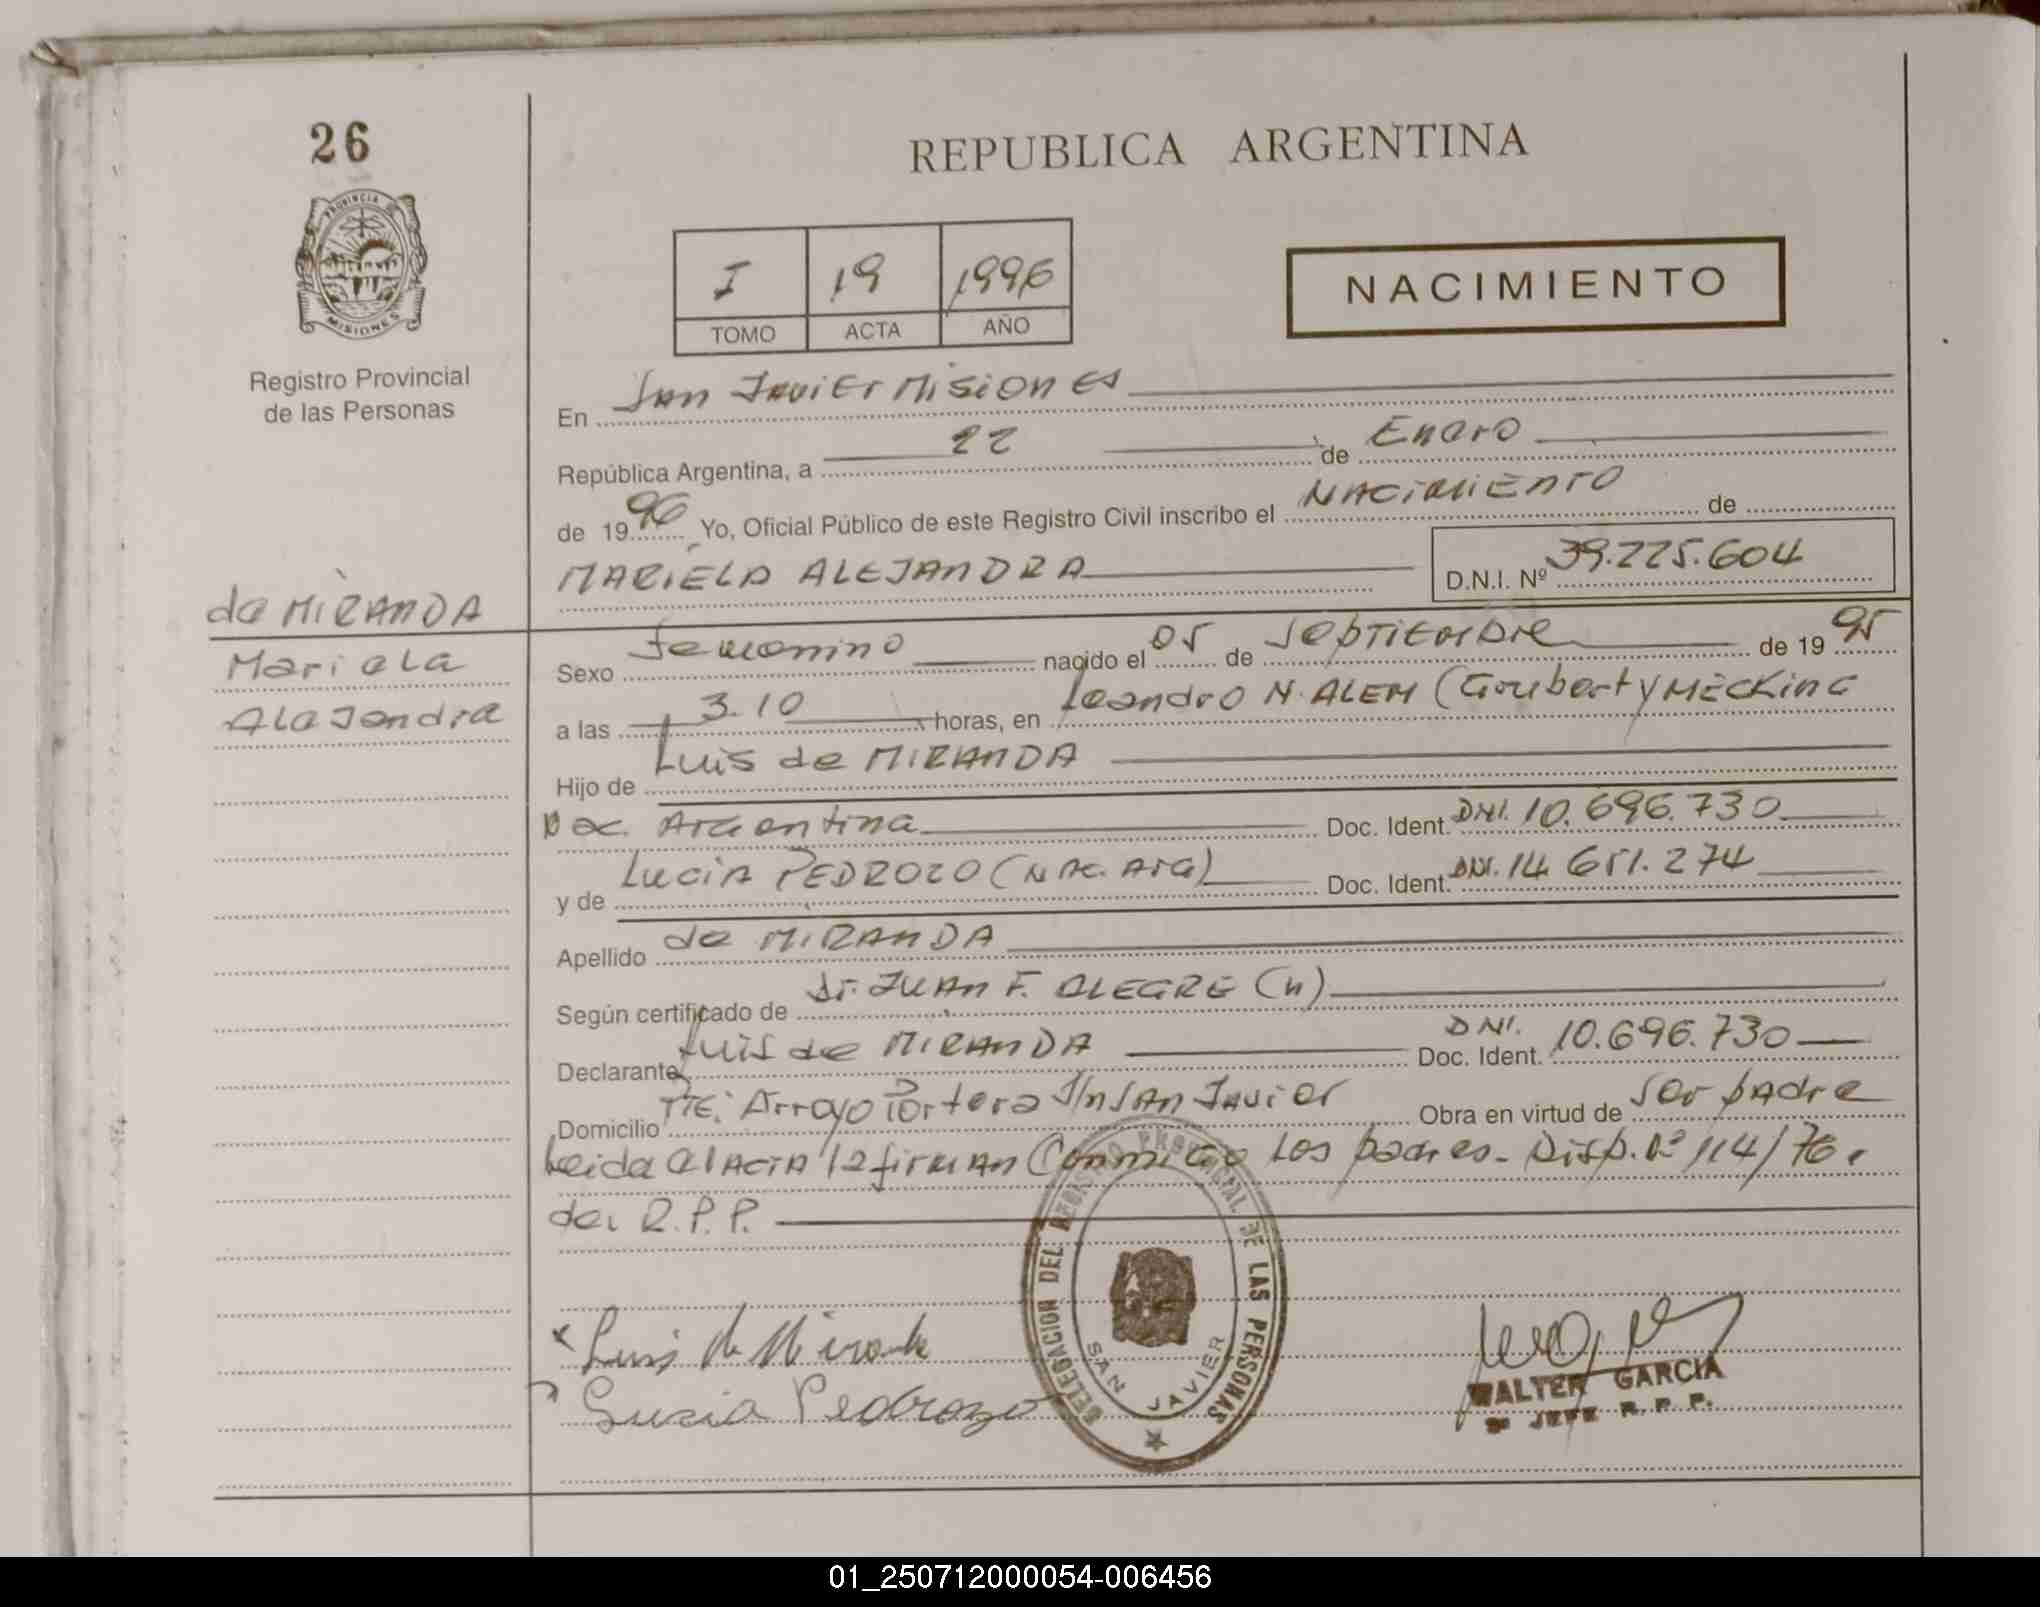 26
PROVINCIA DE
MISIONES
Registro Provincial
de las Personas
de MIRANDA
Mariela
Alejandra
REPUBLICA ARGENTINA
I 19 1996
TOMO ACTA AÑO
NACIMIENTO
En San Javier Misiones
República Argentina, a 22 de Enero
de 1996 Yo, Oficial Público de este Registro Civil inscribo el NACIMIENTO de
MARIELA ALEJANDRA D.N.I. Nº 39.225.604
Sexo Femenino nacido el 05 de Septiembre de 1995
a las 3.10 horas, en Leandro N. ALEM (Goubert y MECKING
Hijo de Luis de MIRANDA
Nac. Argentina Doc. Ident. DNI. 10.696.730
y de Lucia PEDROZO (NAC. Arg) Doc. Ident. DNI. 14.651.274
Apellido de MIRANDA
Según certificado de dr. JUAN F. ALEGRE (h)
Declarante Luis de MIRANDA Doc. Ident. DNI. 10.696.730
Domicilio Pje. Arroyo Portera S/n SAn Javier Obra en virtud de ser padre
Leida el Acta la firman Conmigo Los padres. Disp. Nº 114/76.
del R.P.P.
DELEGACION DEL REGISTRO PROVINCIAL DE LAS PERSONAS
SAN JAVIER
Luis de Miranda
Lucia Pedrozo
WALTER GARCIA
JEFE R. P. P.
01_250712000054-006456